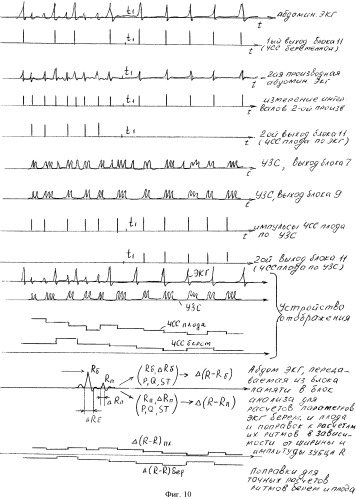 t₁
абдомин. ЭКГ
t
t₁
1ый выход блока 11
(ЧСС беременной)
t
t₁
2ая производная
абдомин. ЭКГ
t
t₁
измерение интер
валов 2-ой произв
t
t₁
2ой выход блока 11
(ЧСС плода по ЭКГ)
t
УЗС, выход блока 7
t
УЗС, выход блока 9
t
t₁
импульсы ЧСС плода
по УЗС
t
2ой выход блока 11
(ЧСС плода по УЗС)
t
ЭКГ
УЗС
Устройство
отображения
ЧСС плода
ЧСС берем
Rб
Rп
ΔRп
ΔRб
(Rб, ΔRб
P, Q, ST) → Δ(R-Rб)
(Rп, ΔRп
P, Q, ST) → Δ(R-Rп)
Абдом ЭКГ, переда-
ваемая из блока
памяти в блок
анализа для
расчетов параметров
ЭКГ берем. и плода
и поправок к расчетам
их ритмов в зависи-
мости от ширины и
амплитуды зубца R
Δ(R-R)пл
Δ(R-R)бер
Поправки для
точных расчетов
ритмов берем и плода
Фиг. 10